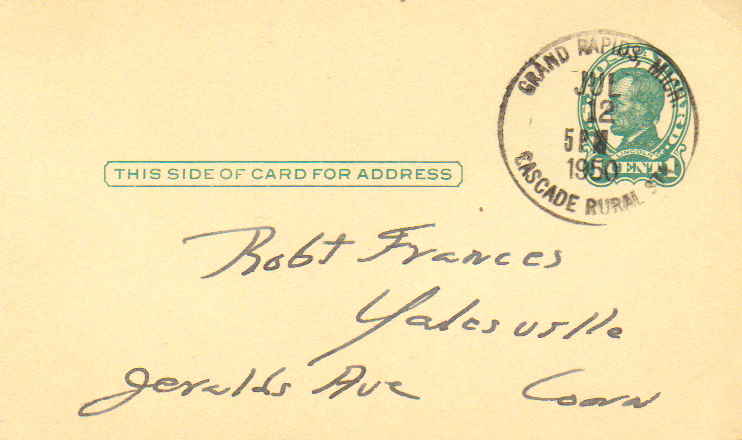 GRAND RAPIDS, MICH
JUL
12
5 PM
1950
CASCADE RURAL STA.
POSTAL CARD
LINCOLN
CENT 1
THIS SIDE OF CARD FOR ADDRESS
Robt Frances
Yalesville
Jeralds Ave Conn